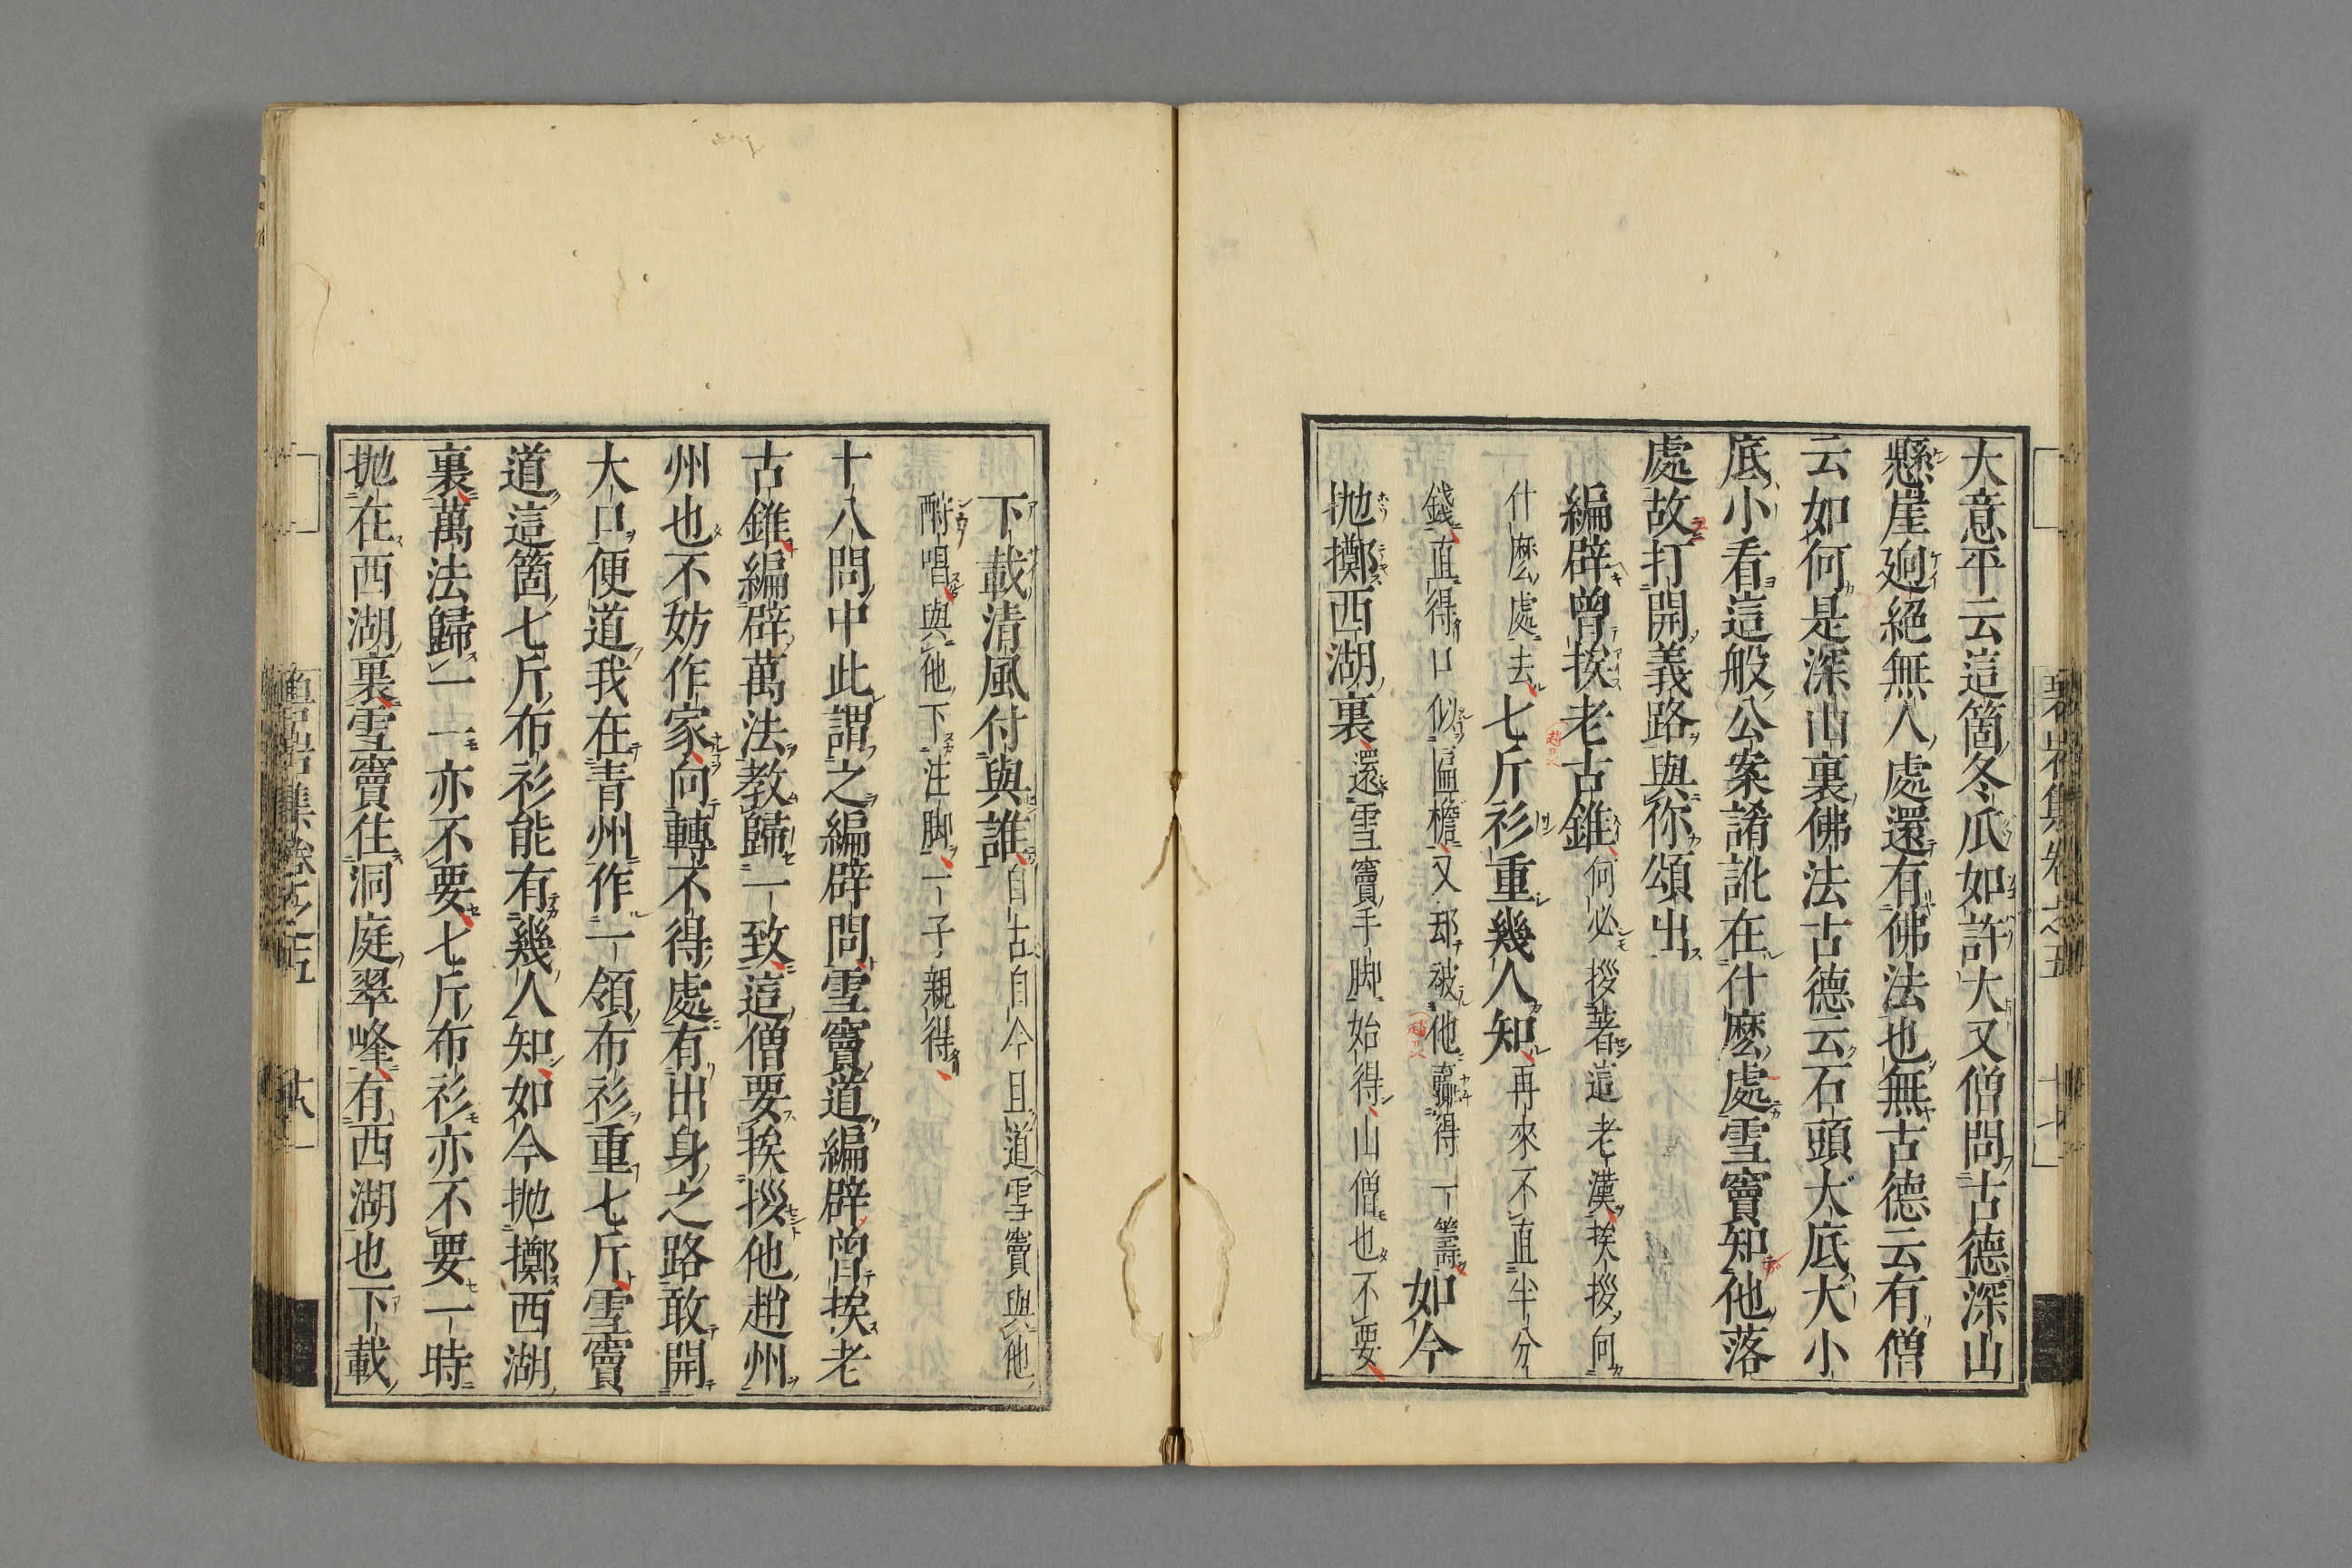 大意平云這箇冬瓜如許大又僧問古德深山
懸崖逈絕無人處還有佛法也無古德云有僧
云如何是深山裏佛法古德云石頭大底大小
底小看這般公案誵訛在什麼處雪竇知他落
處故打開義路與你頌出
編辟曾挨老古錐何必拶著這老漢挨拶向
什麼處去七斤衫重幾人知再來不直半分
錢直得口似匾檐又却被他贏得一籌如今
抛擲西湖裏還雪竇手脚始得山僧也不要
下載清風付與誰自古自今且道雪竇與他
酧唱與他下注脚一子親得
十八問中此謂之編辟問雪竇道編辟曾挨老
古錐編辟萬法教歸一致這僧要挨拶他趙州
州也不妨作家向轉不得處有出身之路敢開
大口便道我在青州作一領布衫重七斤雪竇
道這箇七斤布衫能有幾人知如今抛擲西湖
裏萬法歸一一亦不要七斤布衫亦不要一時
抛在西湖裏雪竇住洞庭翠峰有西湖也下載